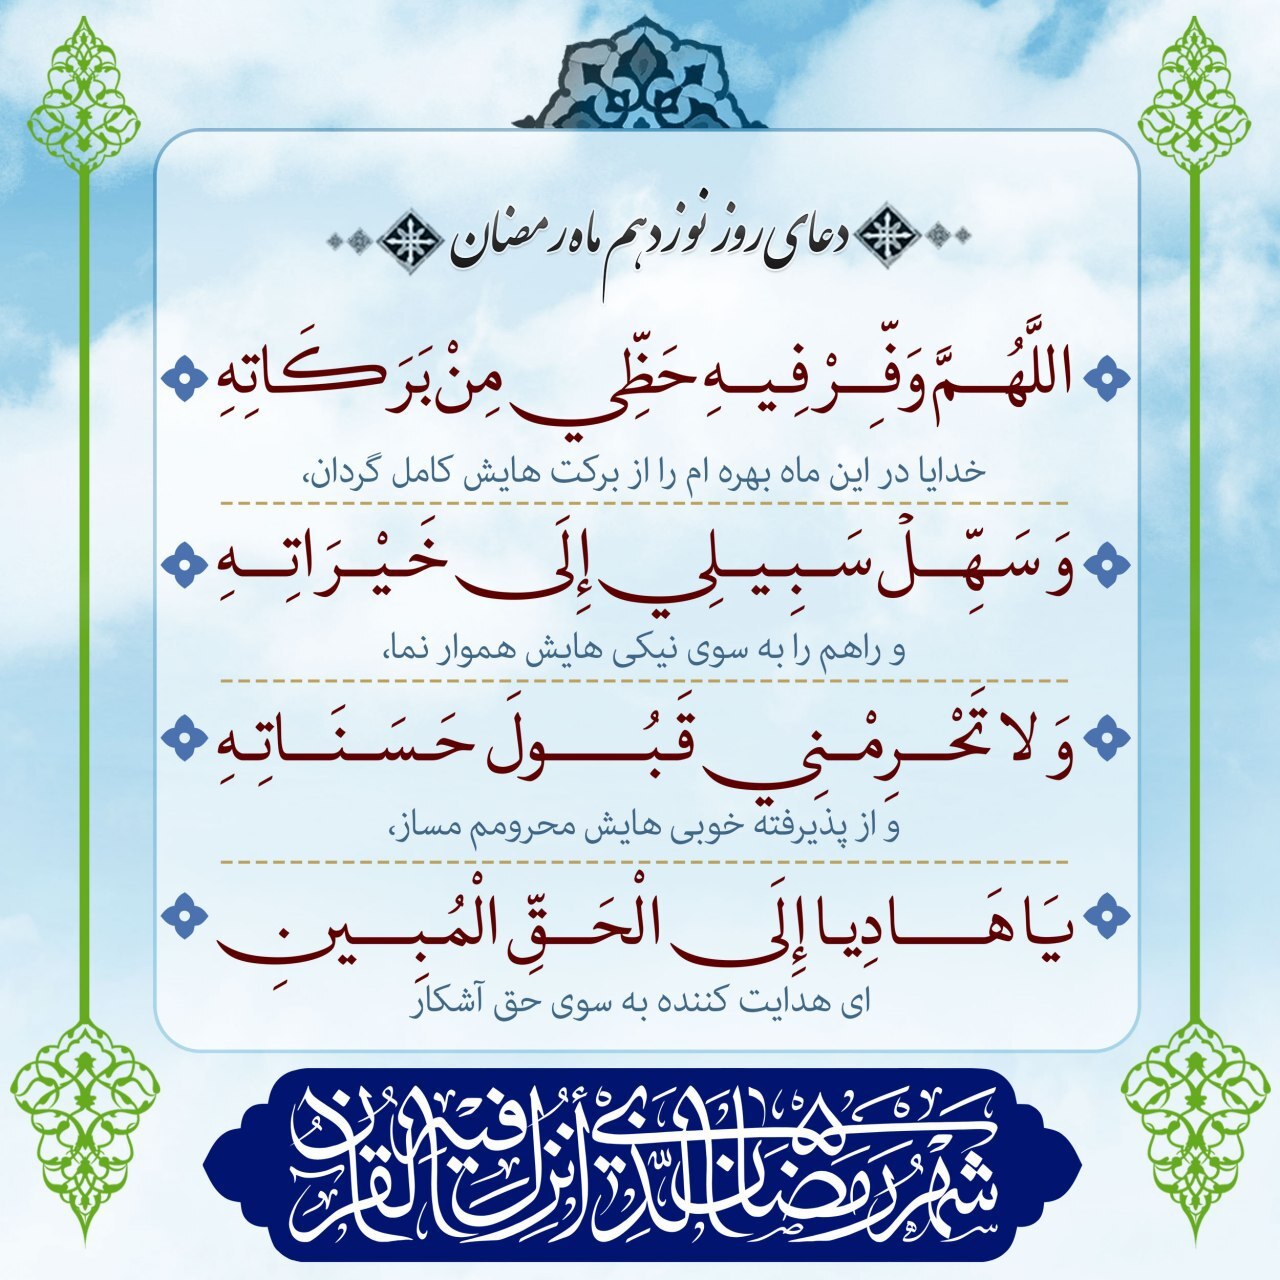 دعای روز نوزدهم ماه رمضان
اللَّهُمَّ وَفِّرْ فِيهِ حَظِّي مِنْ بَرَكَاتِهِ
خدایا در این ماه بهره ام را از برکت هایش کامل گردان،
وَ سَهِّلْ سَبِيلِي إِلَى خَيْرَاتِهِ
و راهم را به سوی نیکی هایش هموار نما،
وَ لا تَحْرِمْنِي قَبُولَ حَسَنَاتِهِ
و از پذیرفته خوبی هایش محرومم مساز،
يَا هَادِيا إِلَى الْحَقِّ الْمُبِينِ
ای هدایت کننده به سوی حق آشکار
شَهْرُ رَمَضَانَ الَّذِي أُنْزِلَ فِيهِ الْقُرْآنُ